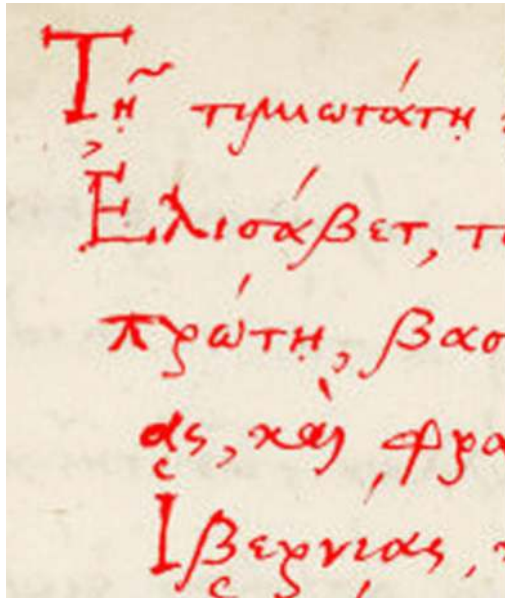 Τῇ τιμιωτάτῃ
Ἐλισάβετ, τ
πρώτῃ, βασ
ας, καὶ φρα
Ἱβερνίας,